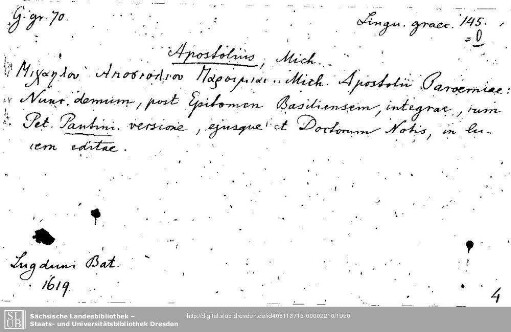 G. gr. 70.
Lingu. graec. 145.
Apostolius, Mich.
Μιχαηλου Αποστολιου Παροιμιαι. Mich. Apostolii Paroemiae:
Nunc demum, post Epitomen Basiliensem, integrae, cum
Pet. Pantini versione, ejusque et Doctorum Notis, in lu-
cem editae.
Lugduni Bat.
1619
4
SLUB
Sächsische Landesbibliothek –
Staats- und Universitätsbibliothek Dresden